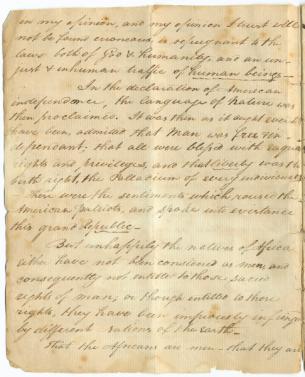 in my opinion, and my opinion I trust will
not be found erroneous, is repugnant to the
laws both of God & humanity, and an un-
just & inhuman traffic of human beings—
In the declaration of American
independence, the language of Nature was
then proclaimed. It was then as it aught ever to
have been, admitted that Man was free & in-
dependant; that all were blessed with equal
rights and priviledges, and that liberty was the
birth right, the Palladium of every individual
These were the sentiments which roused the
American patriots, and spoke into existance
this grand Republic—
But unhappily the natives of Africa
either have not been considered as men and
consequently not entitled to those sacred
rights of man; or though entitled to those
rights, they have been impiously infringed
by different nations of the earth—
That the Africans are men— that they are